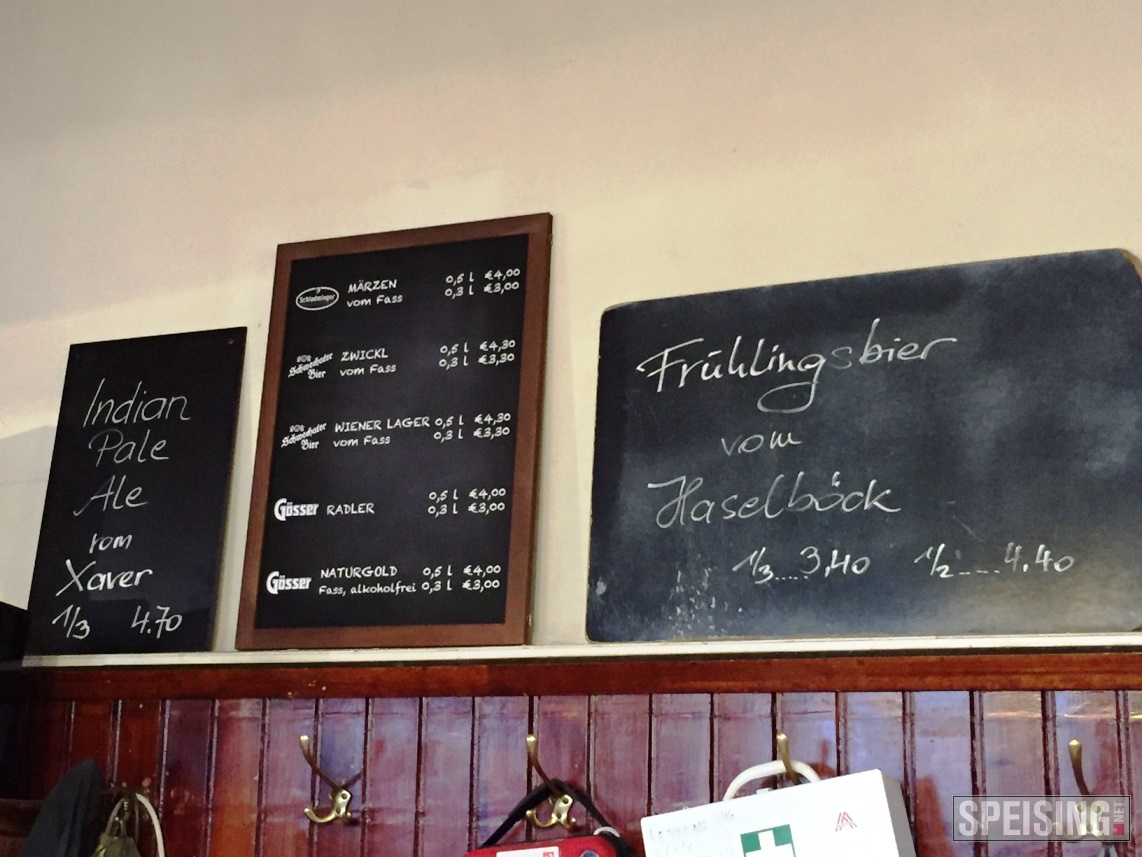 Indian
Pale
Ale
vom
Xaver
1/3 4.70
Schladminger MÄRZEN 0,5 l €4,00
vom Fass 0,3 l €3,00
Schwechater Bier ZWICKL 0,5 l €4,30
vom Fass 0,3 l €3,30
Schwechater Bier WIENER LAGER 0,5 l €4,30
vom Fass 0,3 l €3,30
Gösser RADLER 0,5 l €4,00
0,3 l €3,00
Gösser NATURGOLD 0,5 l €4,00
Fass, alkoholfrei 0,3 l €3,00
Frühlingsbier
vom
Haselböck
1/3.....3,40 1/2.....4.40
SPEISING.NET